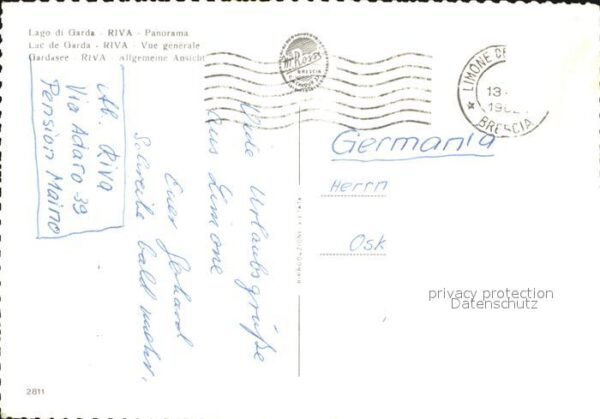 Lago di Garda - RIVA - Panorama
Lac de Garda - RIVA - Vue générale
Gardasee - RIVA - Allgemeine Ansicht
BRESCIA
LIMONE
13
BRESCIA
Ab. Riva
Via Adaro 39
Pension Maino
Viele Urlaubsgrüße
Aus Limone
Euer Gerhard
Schreibe bald mehr.
Germania
Herrn
Osk
privacy protection
Datenschutz
2811